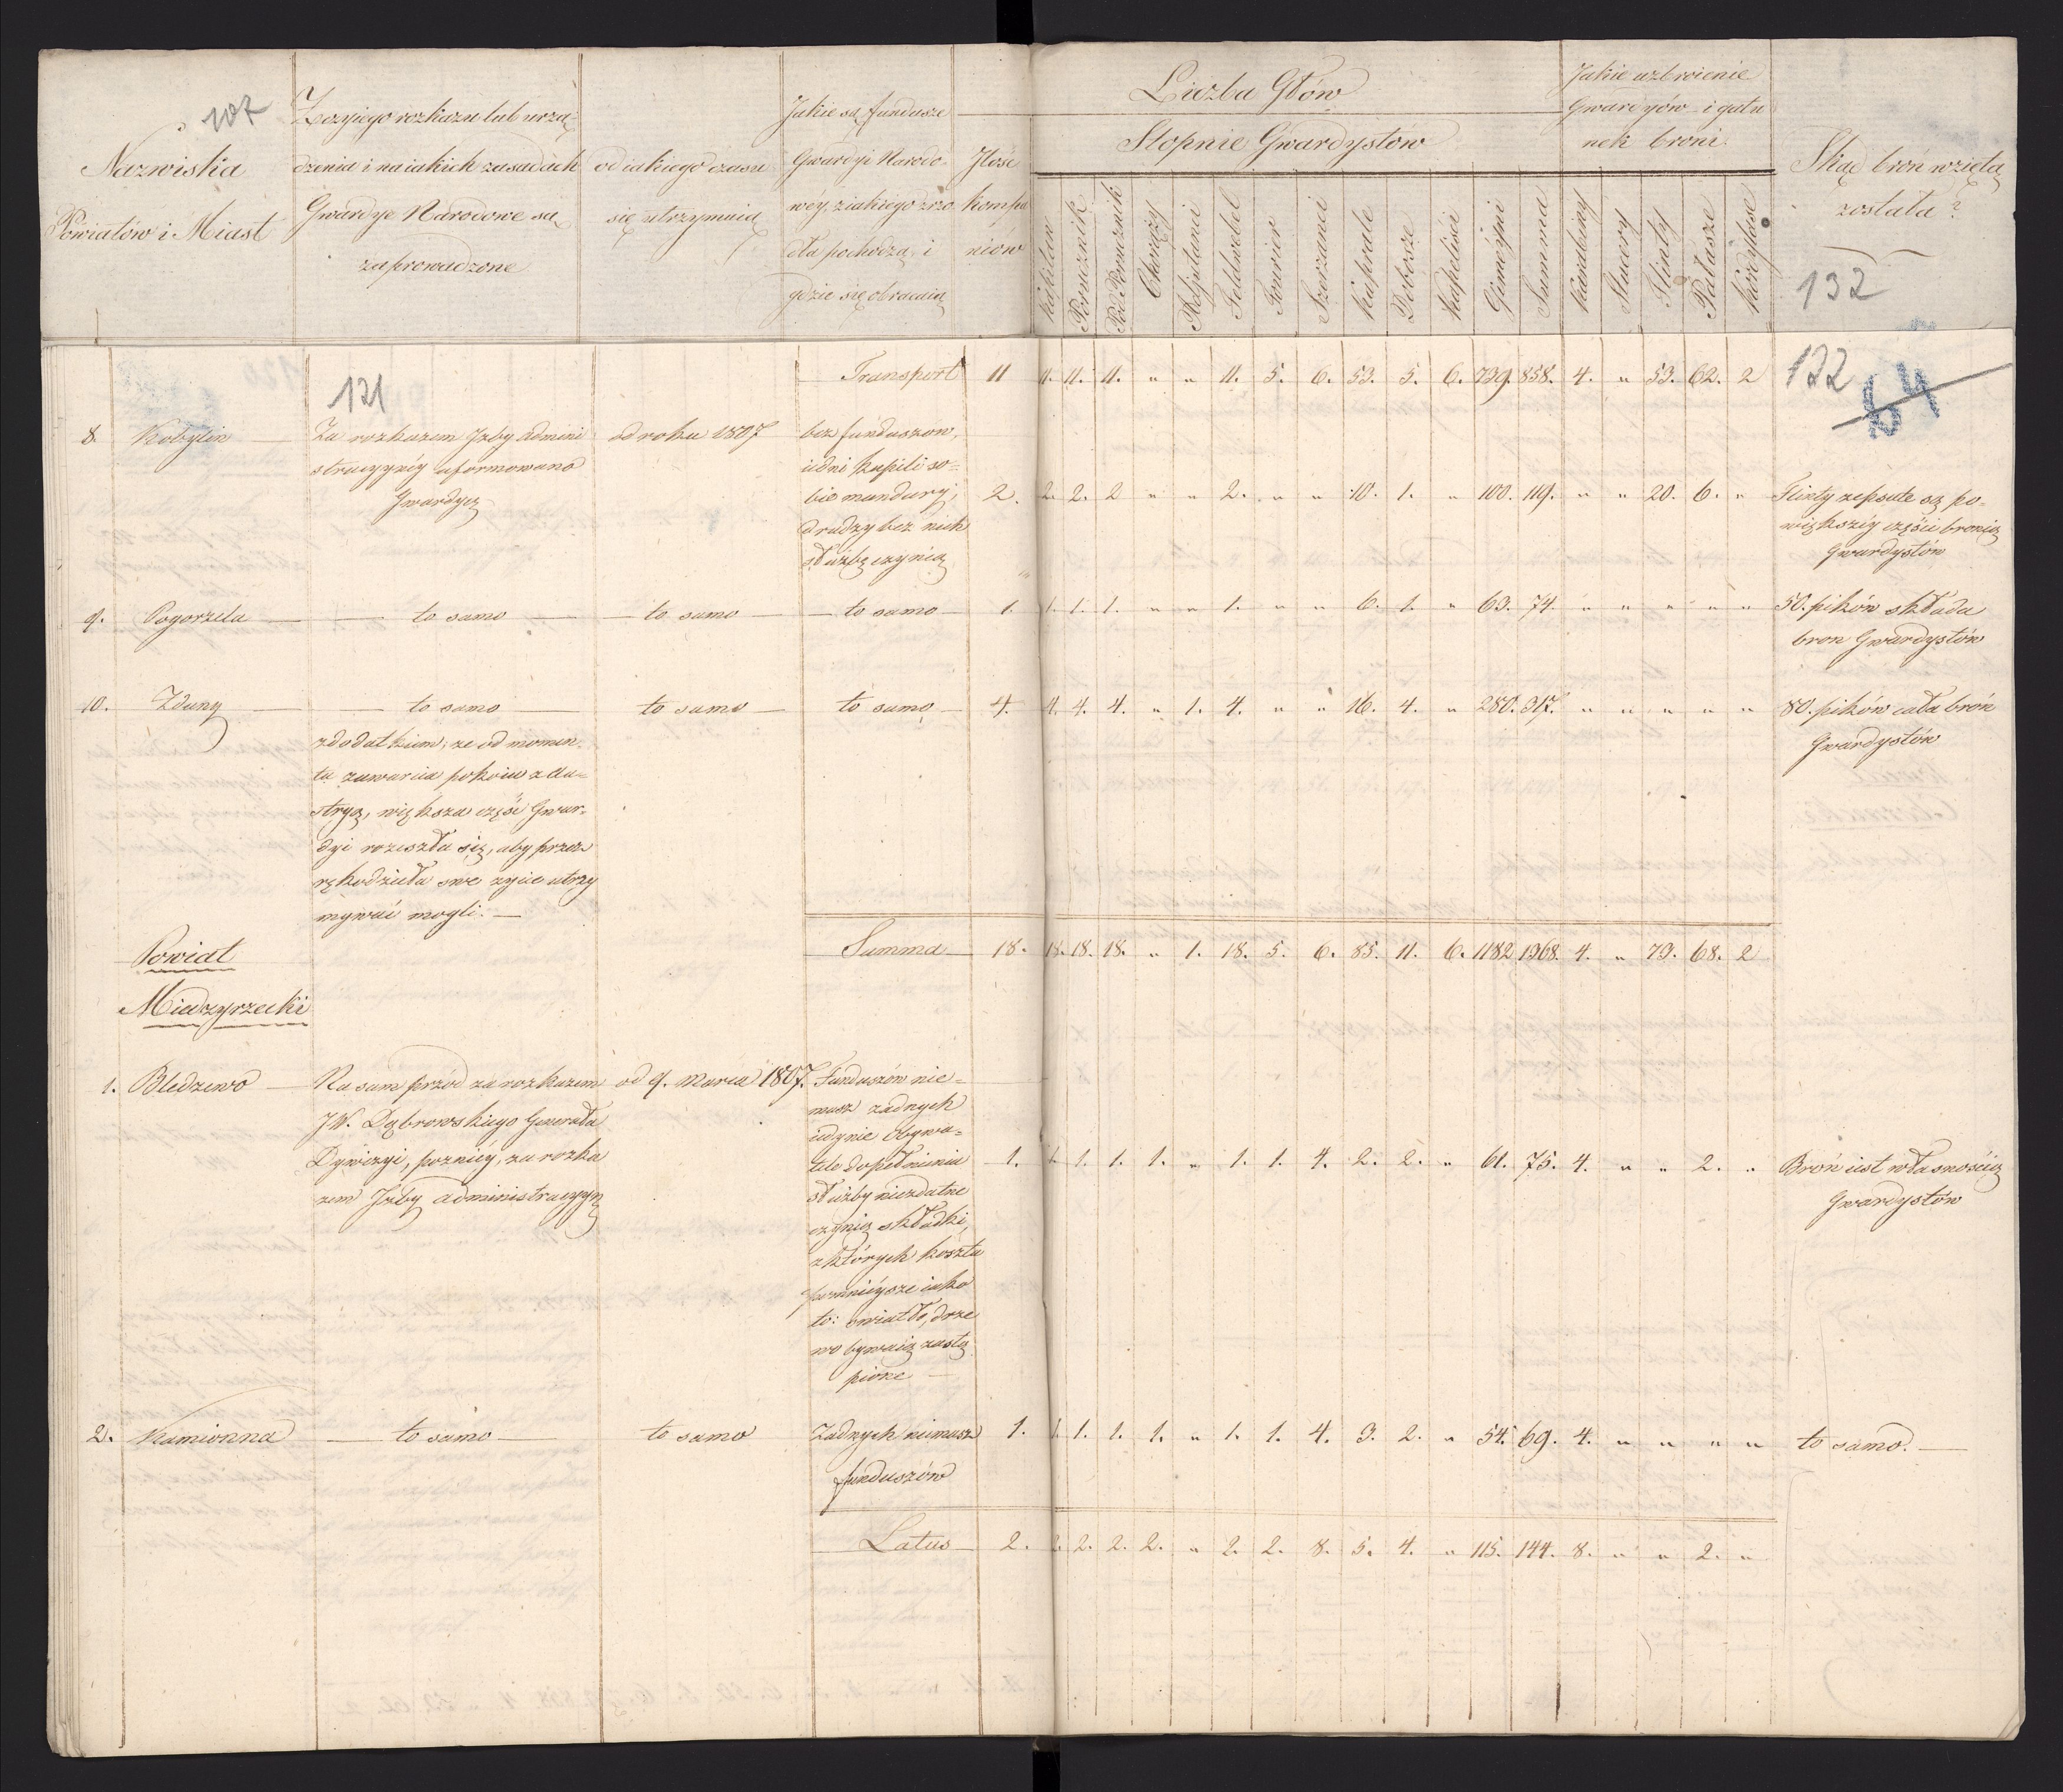 107
Nazwiska
Powiatów i Miast
Z czyiego rozkazu lub urzą-
dzenia i na iakich zasadach
Gwardye Narodowe są
zaprowadzone
od iakiego czasu
się utrzymuią
Jakie są fundusze
Gwardyi Narodo-
wéy, z iakiego źrzó
dła pochodzą, i
gdzie się obracaią
Ilość
kompa
niów
Liczba Głów
Stopnie Gwardystow
Kapitan
Porucznik
Pod Porucznik
Chorąży
Adjutanci
Feldwebel
Fourier
Szerżanci
Kaprale
Dobosze
Kapeliści
Gimeyni
Summa
Jakie uzbroienie
Gwardyów i gatu
nek broni
Karabiny
Stucery
Flinty
Pałasze
Kordylase
Skąd broń wziętą
została?
132
121
122
64
Transport 11 11. 11. 11. " " 11. 5. 6. 53. 5. 6. 739. 858. 4. " 53. 62. 2
8. Kobylin
Za rozkazem Izby Admini
stracyynéy uformowano
Gwardyą
od roku 1807
bez funduszów,
iedni kupili so-
bie mundury,
drudzy bez nich
służbę czynią
2. 2. 2. 2 " " 2. " " 10. 1. " 100. 119. " " 20. 6. "
Flinty zepsute są po-
większéy części bronią
Gwardystów
9. Pogorzela — to samo — to samo — to samo — 1. 1. 1. 1. " " 1. " " 6. 1. " 63. 74. " " " " "
50. pików składa
bron Gwardystów
10. Zduny — to samo — to samo — to samo — 4. 4. 4. 4. " 1. 4. " " 16. 4. " 280. 317. " " " " "
80. pików cała broń
Gwardystów
z dodatkiem, ze od momen-
tu zawarcia pokoiu z Au-
stryą, większa część Gwar-
dyi rozeszła się, aby przez
rękodzieła swe zycie utrzy
mywać mogli. —
Summa 18. 18. 18. 18. " 1. 18. 5. 6. 85. 11. 6. 1182 1368. 4. " 73. 68. 2
Powiat
Miedzyrzecki
1. Bledzewo
Na sam przód za rozkazem
JW. Dąbrowskiego Generała
Dywizyi, poznićy, za rozka
zem Izby administracyyn
od 9. Marca 1807.
Funduszów nie-
masz zadnych
iedynie Obywa-
tele dopełnienia
służby niezdatne
czynią składki,
z których koszta
pomnieysze iako
to: swiatło, drze
wo bywaią zastą
pione —
1. 1. 1. 1. 1. " 1. 1. 4. 2. 2. " 61. 75. 4. " " 2. "
Broń iest własnością
Gwardystów
2. Kamionna — to samo — to samo
Zadnych niemasz
funduszów
1. 1. 1. 1. 1. " 1. 1. 4. 3. 2. " 54. 69. 4. " " " " to samo. —
Latus 2. 2. 2. 2. 2. " 2. 2. 8. 5. 4. " 115. 144. 8. " " 2. "